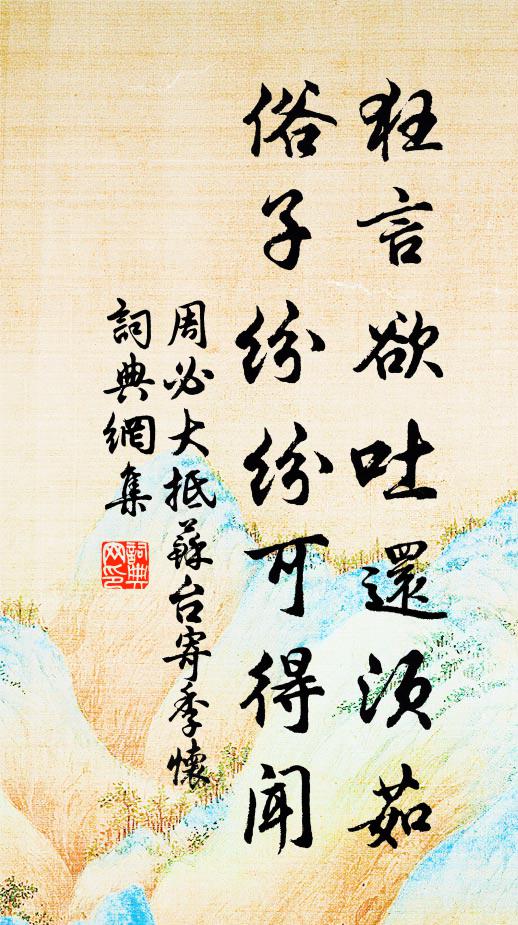 狂言欲吐還須茹
俗子紛紛可得聞
周必大抵蘇台寄季懷
詞典網集
詞典網印